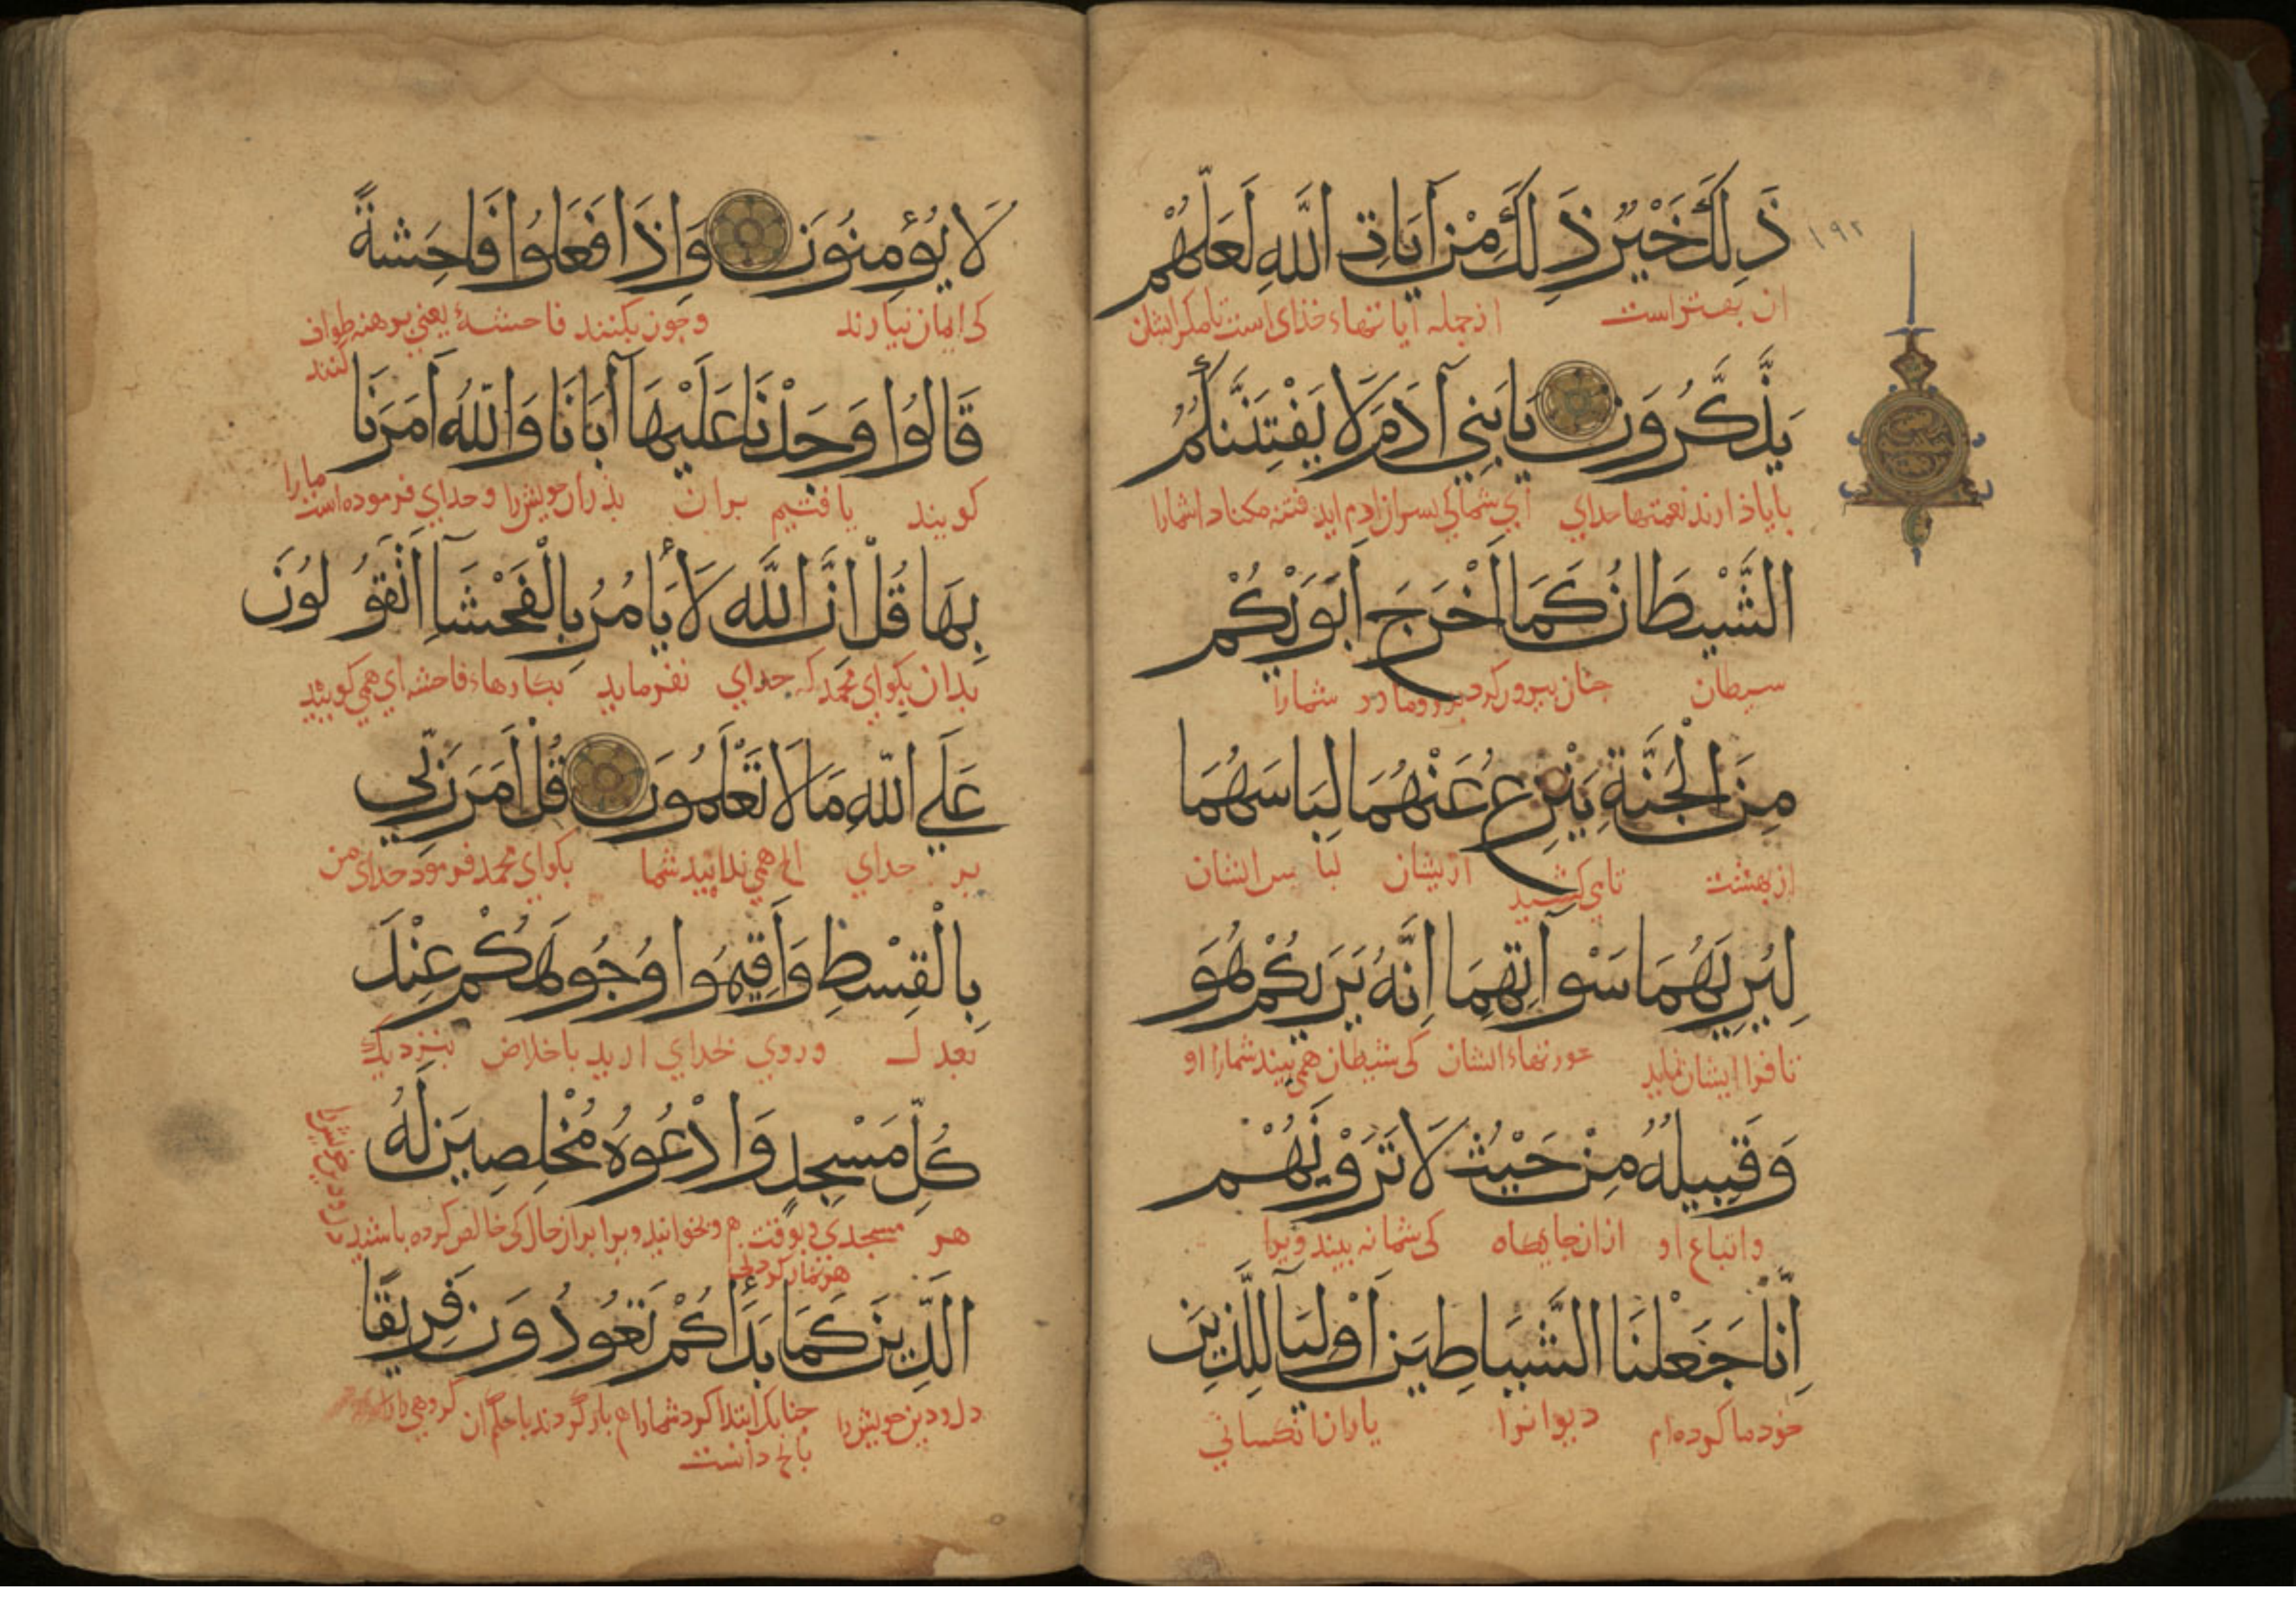 ١٩٢
ذَلِكَ خَيْرٌ ذَلِكَ مِنْ آيَاتِ اللَّهِ لَعَلَّهُمْ
ان بهتر است از جمله آیاتهاء خذای است تا مکر ایشان
يَذَّكَّرُونَ يَا بَنِي آدَمَ لَا يَفْتِنَنَّكُمُ
با یاذ ارند نعمتها خدای ای شما کی بسران ادم اید فتنه مکناد شمارا
الشَّيْطَانُ كَمَا أَخْرَجَ أَبَوَيْكُمْ
شیطان جنان بیرون کرد و مادر شمارا
مِنَ الْجَنَّةِ يَنْزِعُ عَنْهُمَا لِبَاسَهُمَا
از بهشت تا می کشید ازیشان لباس ایشان
لِيُرِيَهُمَا سَوْآتِهِمَا إِنَّهُ يَرَيكُمْ هُوَ
تا فرا ایشان نماید عورتهاء ایشان کی شیطان همی بیند شمارا او
وَقَبِيلُهُ مِنْ حَيْثُ لَا تَرَوْنَهُمْ
و اتباع او ازان جایگاه کی شما نه بیند ویرا
إِنَّا جَعَلْنَا الشَّيَاطِينَ أَوْلِيَآ لِلَّذِينَ
خود ما کرده‌ام دیوانرا یاران انکسانی
لَا يُؤْمِنُونَ وَإِذَا فَعَلُوا فَاحِشَةً
کی ایمان نیارند و جون بکنند فاحشۀ یعنی برهنه طواف
کنند
قَالُوا وَجَدْنَا عَلَيْهَا آبَانَا وَاللَّهُ أَمَرَنَا
کویند یافتیم بران بذران خویش را و خدای فرموده است مارا
بِهَا قُلْ إِنَّ اللَّهَ لَا يَأْمُرُ بِالْفَحْشَآ أَتَقُولُونَ
بدان بکو ای محمد که خدای نفرماید بکارهاء فاحشه ای همی کویید
عَلَى اللَّهِ مَا لَا تَعْلَمُونَ قُلْ أَمَرَ رَبِّي
بر خدای انج همی ندانید شما بکو ای محمد فرمود خدای من
بِالْقِسْطِ وَأَقِيمُوا وُجُوهَكُمْ عِنْدَ
بعدل و روی بخدای ارید باخلاص بنزدیک
كُلِّ مَسْجِدٍ وَادْعُوهُ مُخْلِصِينَ لَهُ
هر مسجدی و بوقت هر و بخوانید ویرا بران حال کی خالص کرده باشید
هر نماز کردنی
الدِّينَ كَمَا بَدَأَكُمْ تَعُودُونَ فَرِيقًا
دل و دین خویش را جنانک ابتدا کرد شمارا هم باز گردند با حکم ان گروهی را